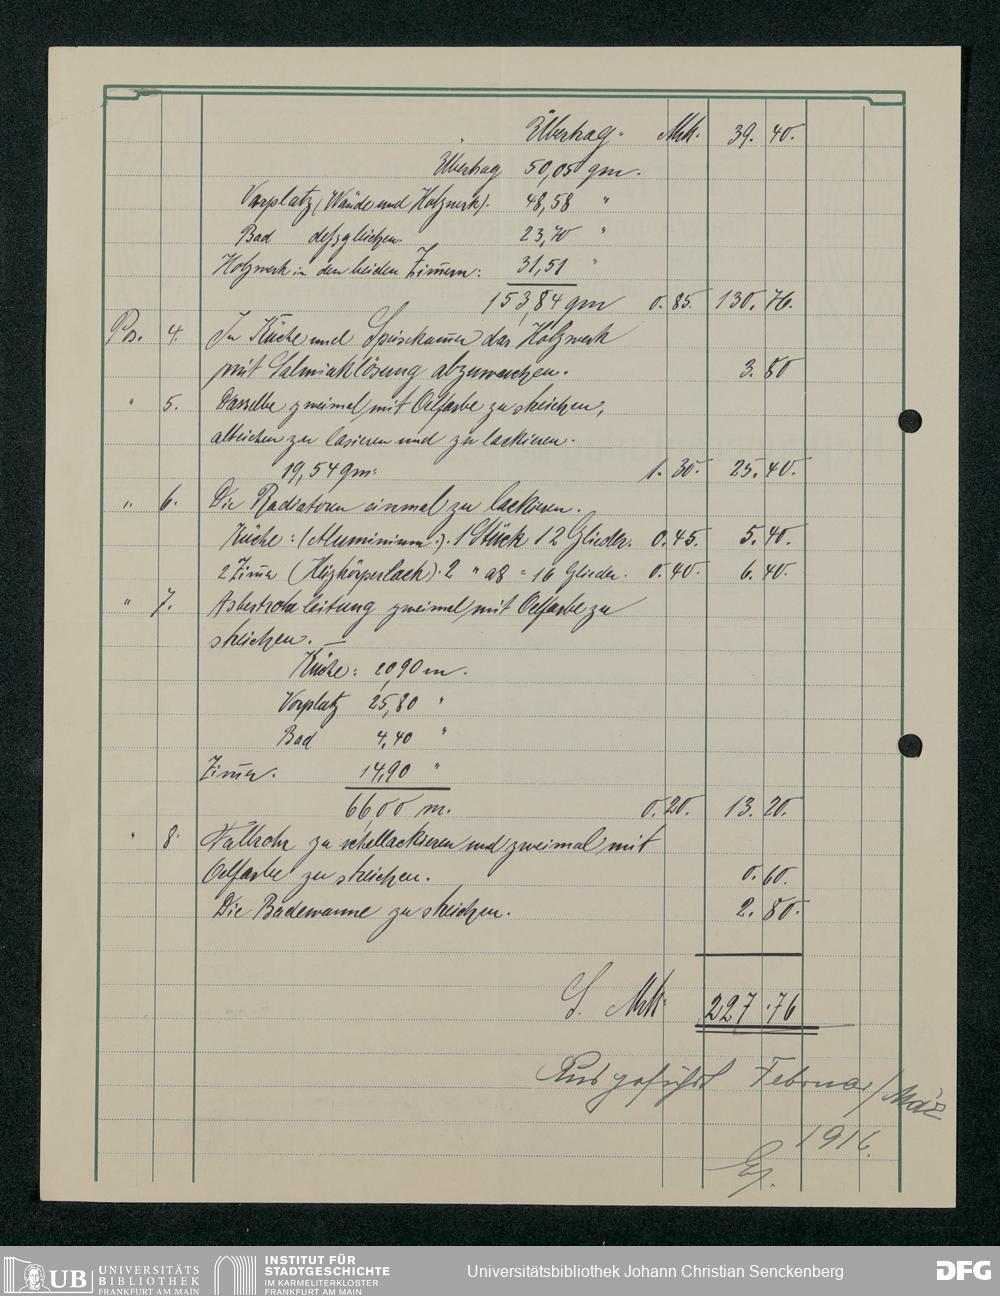 Übertrag. Mk. 39. 40.
Übertrag 50,05 qm.
Vorplatz (Wände und Holzwerk). 48,58 "
Bad desgleichen. 23,70 "
Holzwerk in den beiden Zimmern: 31,51 "
153,84 qm 0.85. 130.76.
Pos. 4. In Küche und Speisekammer das Holzwerk
mit Salmiaklösung abzuwaschen. 3.80
" 5. Dasselbe zweimal mit Oelfarbe zu streichen,
alteichen zu lasieren und zu lackieren.
19,54 qm: 1.30. 25.40.
" 6. Die Radiatoren einmal zu lackieren.
Küche: (Aluminium.). 1 Stück 12 Glieder. 0.45. 5.40.
2 Zimmer (Heizkörperlack). 2 " a 8 = 16 Glieder. 0.40. 6.40.
" 7. Asbestrohrleitung zweimal mit Oelfarbe zu
streichen.
Küche: 20,90 m.
Vorplatz 25,80 "
Bad 4,40 "
Zimmer. 14,90 "
66,00 m. 0.20. 13.20.
" 8. Fallrohr zu schellackieren und zweimal mit
Oelfarbe zu streichen. 0.60.
Die Badewanne zu streichen. 2.80.
S. Mk. 227.76
Ausgeführt Februar/März
1916.
UB UNIVERSITÄTS
BIBLIOTHEK
FRANKFURT AM MAIN
INSTITUT FÜR
STADTGESCHICHTE
IM KARMELITERKLOSTER
FRANKFURT AM MAIN
Universitätsbibliothek Johann Christian Senckenberg
DFG